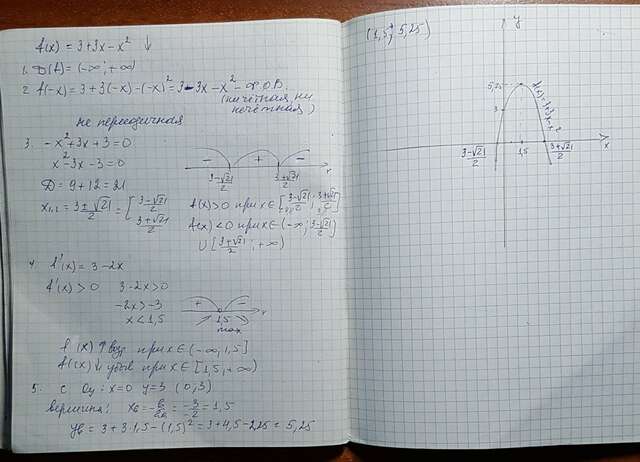 f(x) = 3+3x-x² ↓
1. D(f) = (-∞; +∞)
2. f(-x) = 3+3(-x)-(-x)² = 3-3x-x² - Ф.О.В.
(ни чётная, ни нечётная)
не периодичная
3. -x²+3x+3=0
x²-3x-3=0
D = 9+12 = 21
x₁,₂ = (3±√21)/2 = [(3-√21)/2
(3+√21)/2
- + -
(3-√21)/2 (3+√21)/2 x
f(x)>0 при x∈[(3-√21)/2; (3+√21)/2]
f(x)<0 при x∈(-∞; (3-√21)/2]
∪[(3+√21)/2; +∞)
4. f'(x) = 3-2x
f'(x)>0 3-2x>0
-2x>-3
x<1,5
+ -
1,5 x
max
f(x)↑ возр при x∈(-∞; 1,5]
f(x)↓ убыв при x∈[1,5; +∞)
5. С Oy: x=0 y=3 (0;3)
вершина: xв = -b/2a = -3/-2 = 1,5
yв = 3+3·1,5-(1,5)² = 3+4,5-2,25 = 5,25
(1,5; 5,25)
y
5,25
3
f(x)=3+3x-x²
(3-√21)/2 1,5 (3+√21)/2 x